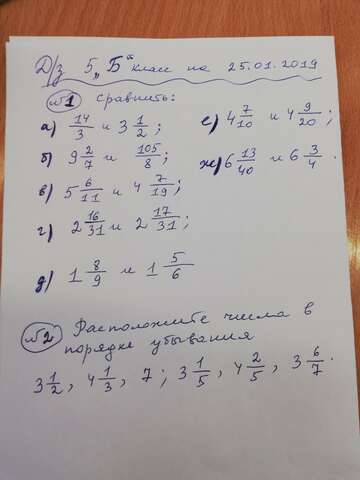 Д/з 5 „Б" класс на 25.01.2019
№1 Сравнить:
а) 14/3 и 3 1/2; е) 4 7/10 и 4 9/20;
б) 9 2/7 и 105/8; ж) 6 13/40 и 6 3/4.
в) 5 6/11 и 4 7/19;
г) 2 16/31 и 2 17/31;
д) 1 8/9 и 1 5/6
№2 Расположите числа в
порядке убывания
3 1/2, 4 1/3, 7; 3 1/5, 4 2/5, 3 6/7.